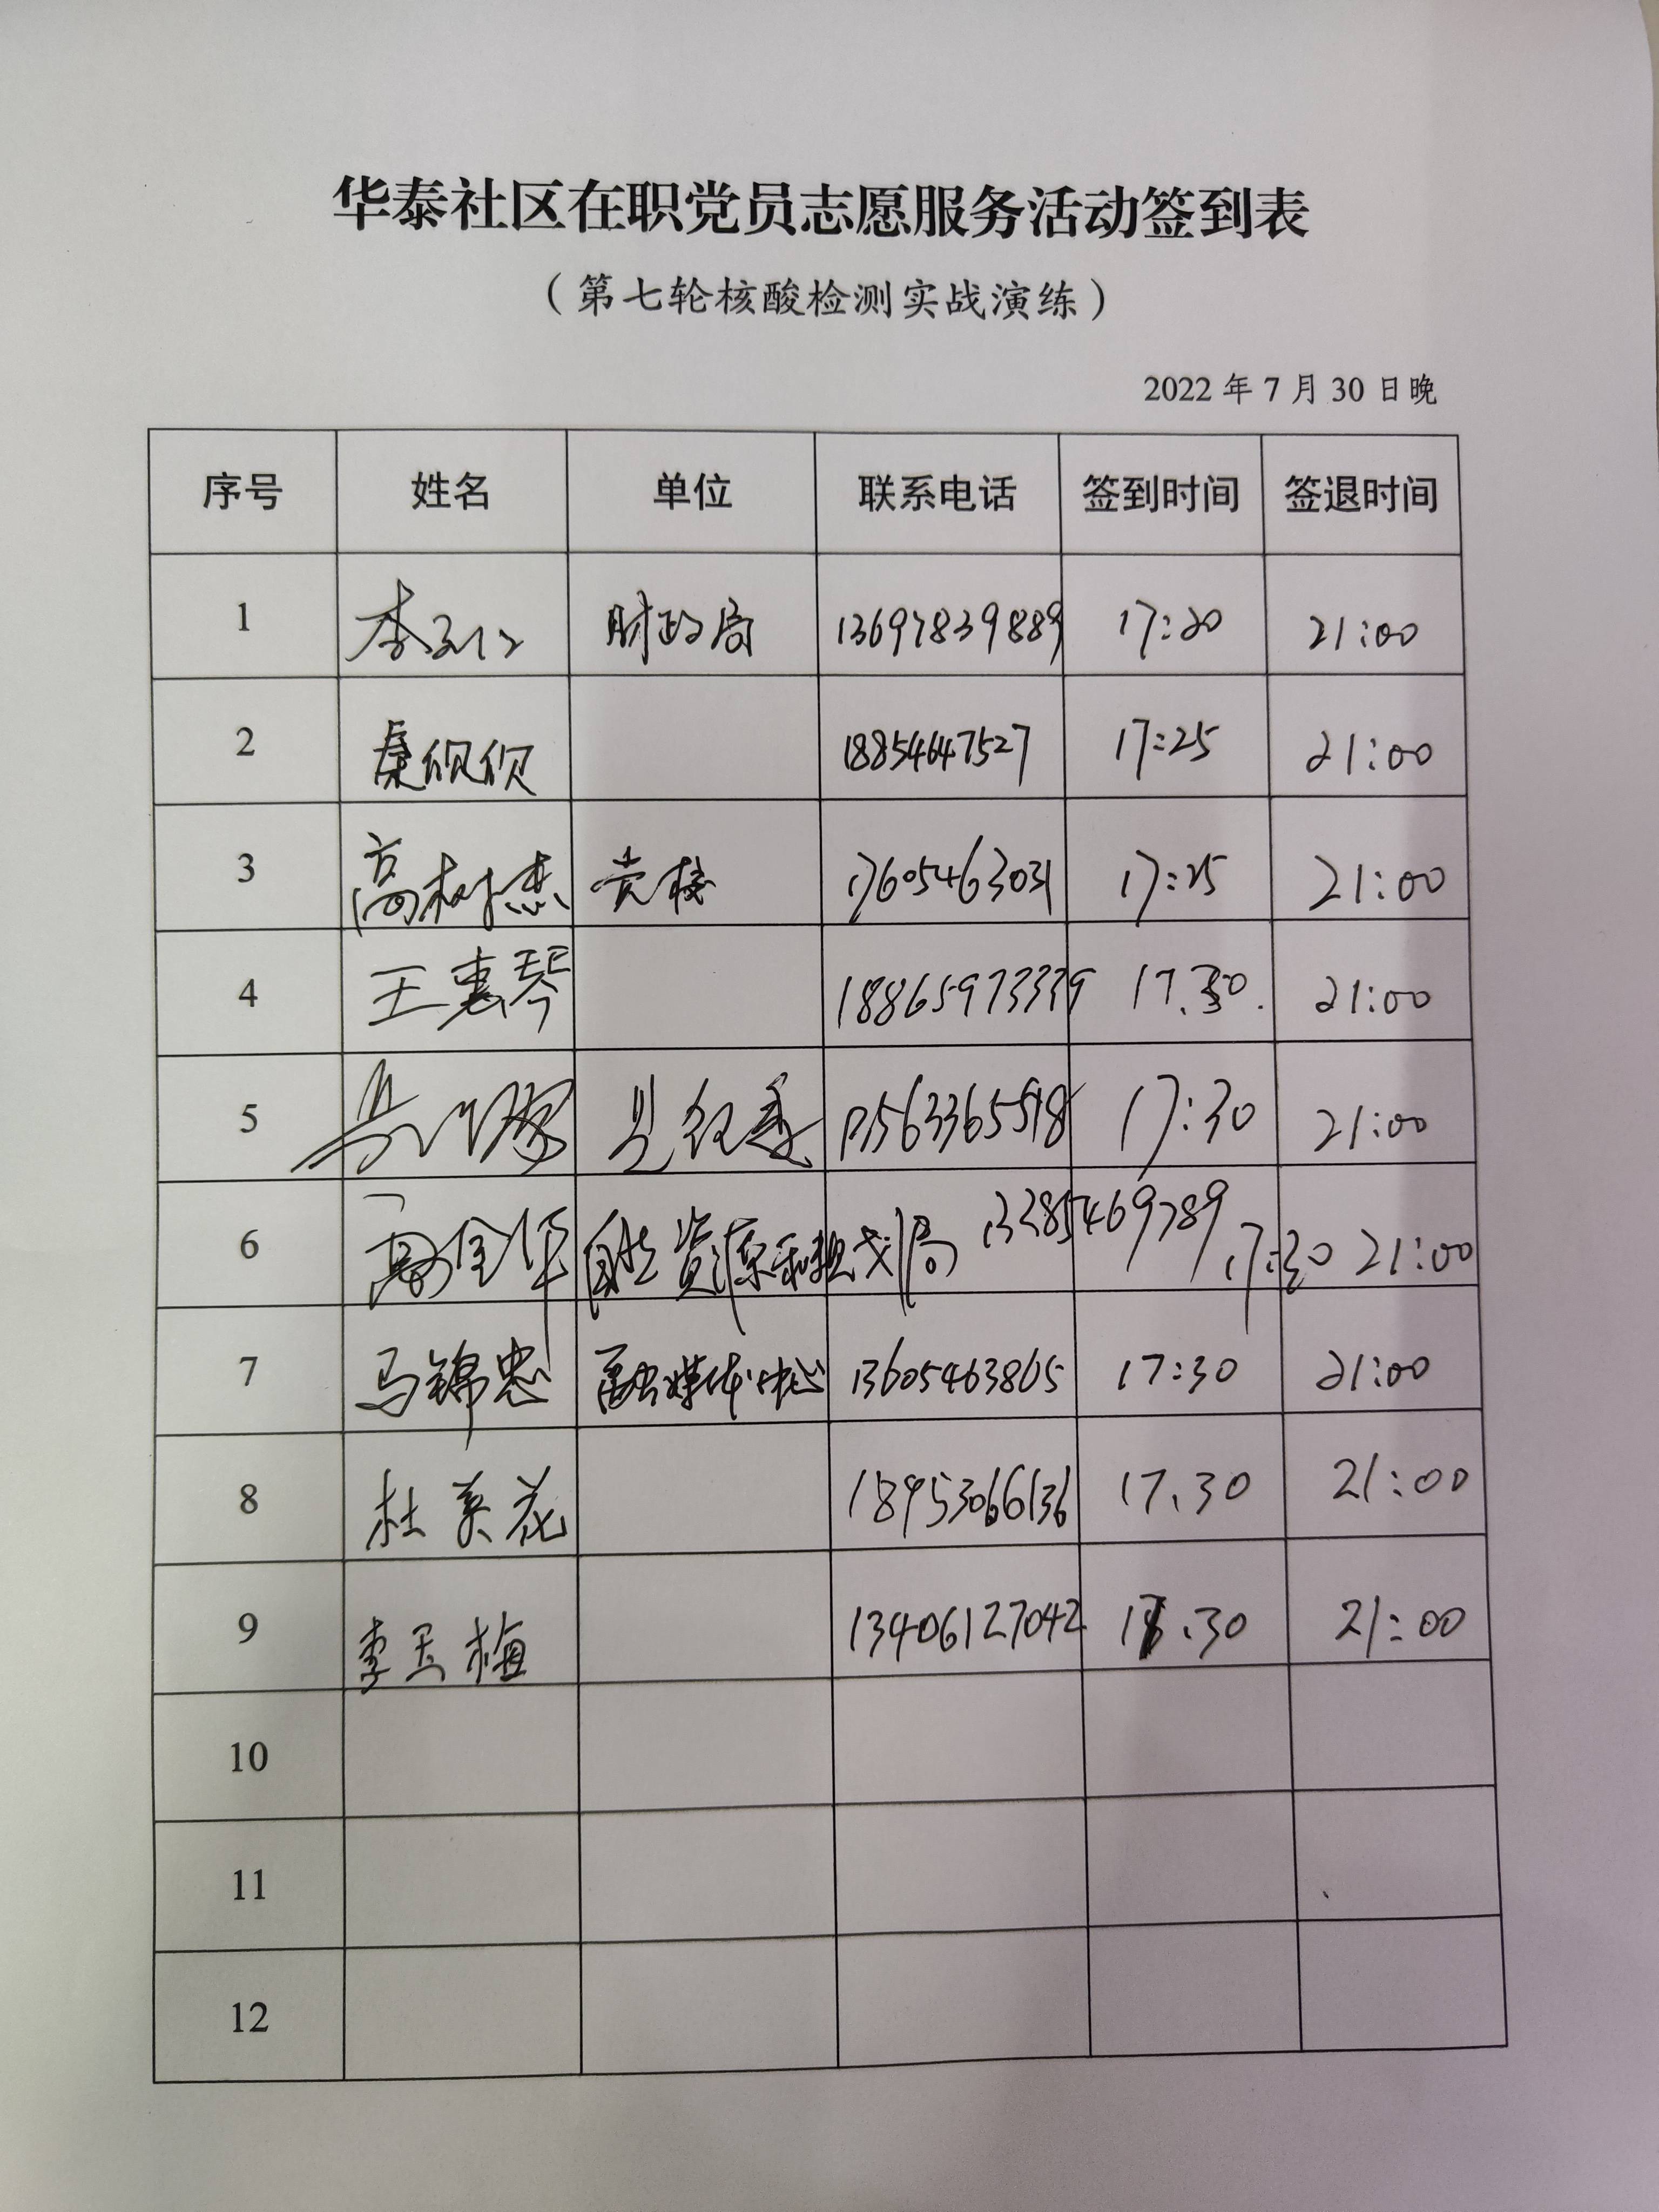 华泰社区在职党员志愿服务活动签到表
（第七轮核酸检测实战演练）
2022 年 7 月 30 日晚
序号 姓名 单位 联系电话 签到时间 签退时间
1 李 财政局 13697839889 17:20 21:00
2 秦 18854647527 17:25 21:00
3 高树杰 党校 17605463031 17:25 21:00
4 王惠琴 18865973339 17.30. 21:00
5 县纪委 17:30 21:00
6 高金华 自然资源和规划局 13285469789 17:30 21:00
7 马锦忠 融媒体中心 13605463865 17:30 21:00
8 杜英花 18953066136 17.30 21:00
9 李玉梅 13406127042 17.30 21:00
10
11
12